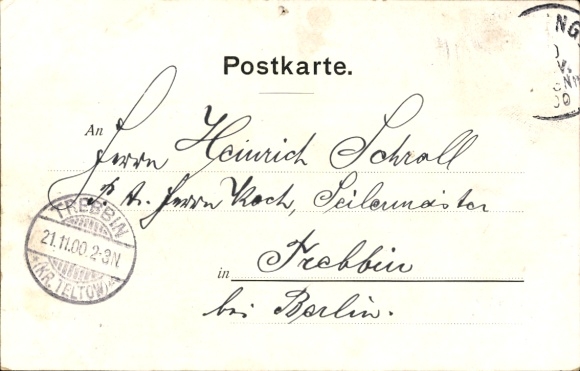 Postkarte.
An Herrn Heinrich Schroll
p. A. Herrn Koch, Seilermeister
in Trebbin
bei Berlin.
TREBBIN
21.11.00.2-3N.
*(KR. TELTOW)*